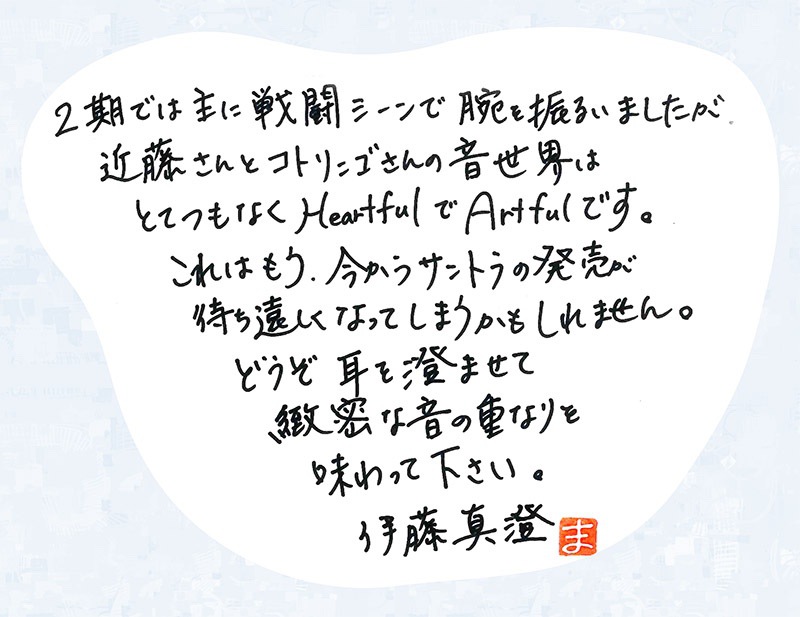 2期では主に戦闘シーンで腕を振るいましたが、
近藤さんとコトリンゴさんの音世界は
とてつもなくHeartfulでArtfulです。
これはもう、今からサントラの発売が
待ち遠しくなってしまうかもしれません。
どうぞ耳を澄ませて
緻密な音の重なりを
味わって下さい。
伊藤真澄 ま